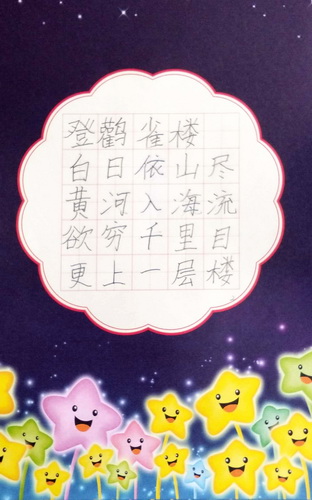 登鹳雀楼
白日依山尽
黄河入海流
欲穷千里目
更上一层楼